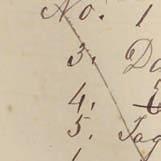 No. 1
3. Da
4.
5. Tag